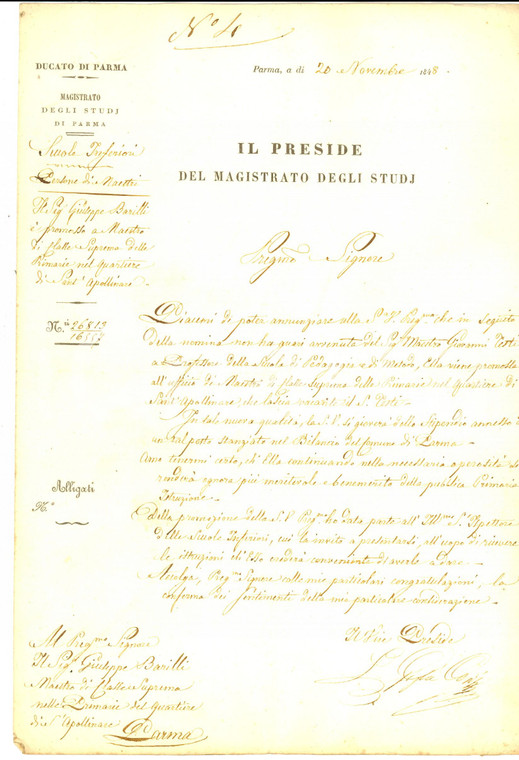 N.º 4
DUCATO DI PARMA
MAGISTRATO
DEGLI STUDJ
DI PARMA
Scuole Inferiori
Persone di Maestri
Il Sig. Giuseppe Barilli
è promosso a Maestro
di Classe Suprema delle
Primarie nel quartiere
di Sant' Apollinare
N.ri 26813
16
Alligati
N.º
Parma, a dì 20 Novembre 1848.
IL PRESIDE
DEL MAGISTRATO DEGLI STUDJ
Pregmo Signore
Piacemi di poter annunziare alla S. V. Pregma che in seguito
della nomina non ha guari avvenuta del Sig. Maestro Giovanni Testi
a Professore della Scuola di Pedagogia e di Metodo, Ella viene promosso
all'officio di Maestro di Classe Suprema delle Primarie nel quartiere di
Sant' Apollinare, che lascia vacante il S. Testi.
In tale nuova qualità, la S. V. si gioverà dello Stipendio annesso
a tal posto stanziato nel Bilancio del Comune di Parma.
Amo tenermi certo, ch'Ella continuando nella necessaria operosità si
renderà ognora più meritevole e benemerito della pubblica Primaria
Istruzione.
della promozione della S. V. Pregma ho dato parte all' Illmo S. Ispettore
delle Scuole Inferiori, cui la invito a presentarsi, all'scopo di ricevere
le istruzioni ch'Esso crederà conveniente di averle a dare.
Accolga, Pregmo Signore colle mie particolari congratulazioni, la
conferma dei sentimenti della mia particolare considerazione.
Il Vice Preside
Al Pregmo Signore
Il Sig. Giuseppe Barilli
Maestro di Classe Suprema
nelle Primarie del quartiere
di S. Apollinare
Parma